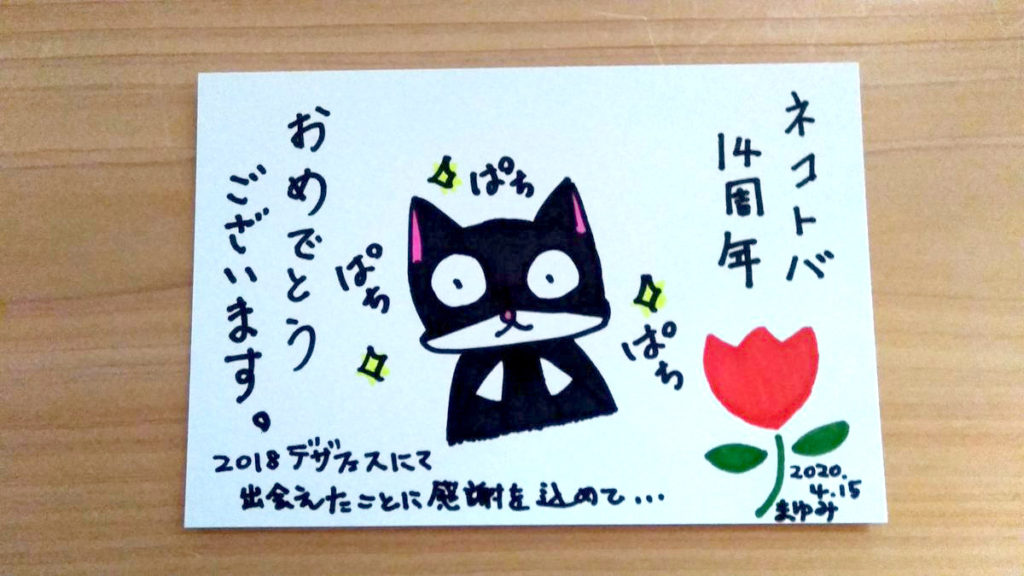 ネコトバ
14周年
おめでとう
ございます。
ぱち
ぱち
ぱち
2018デザフェスにて
出会えたことに感謝を込めて...
2020.
4.15
まゆみ